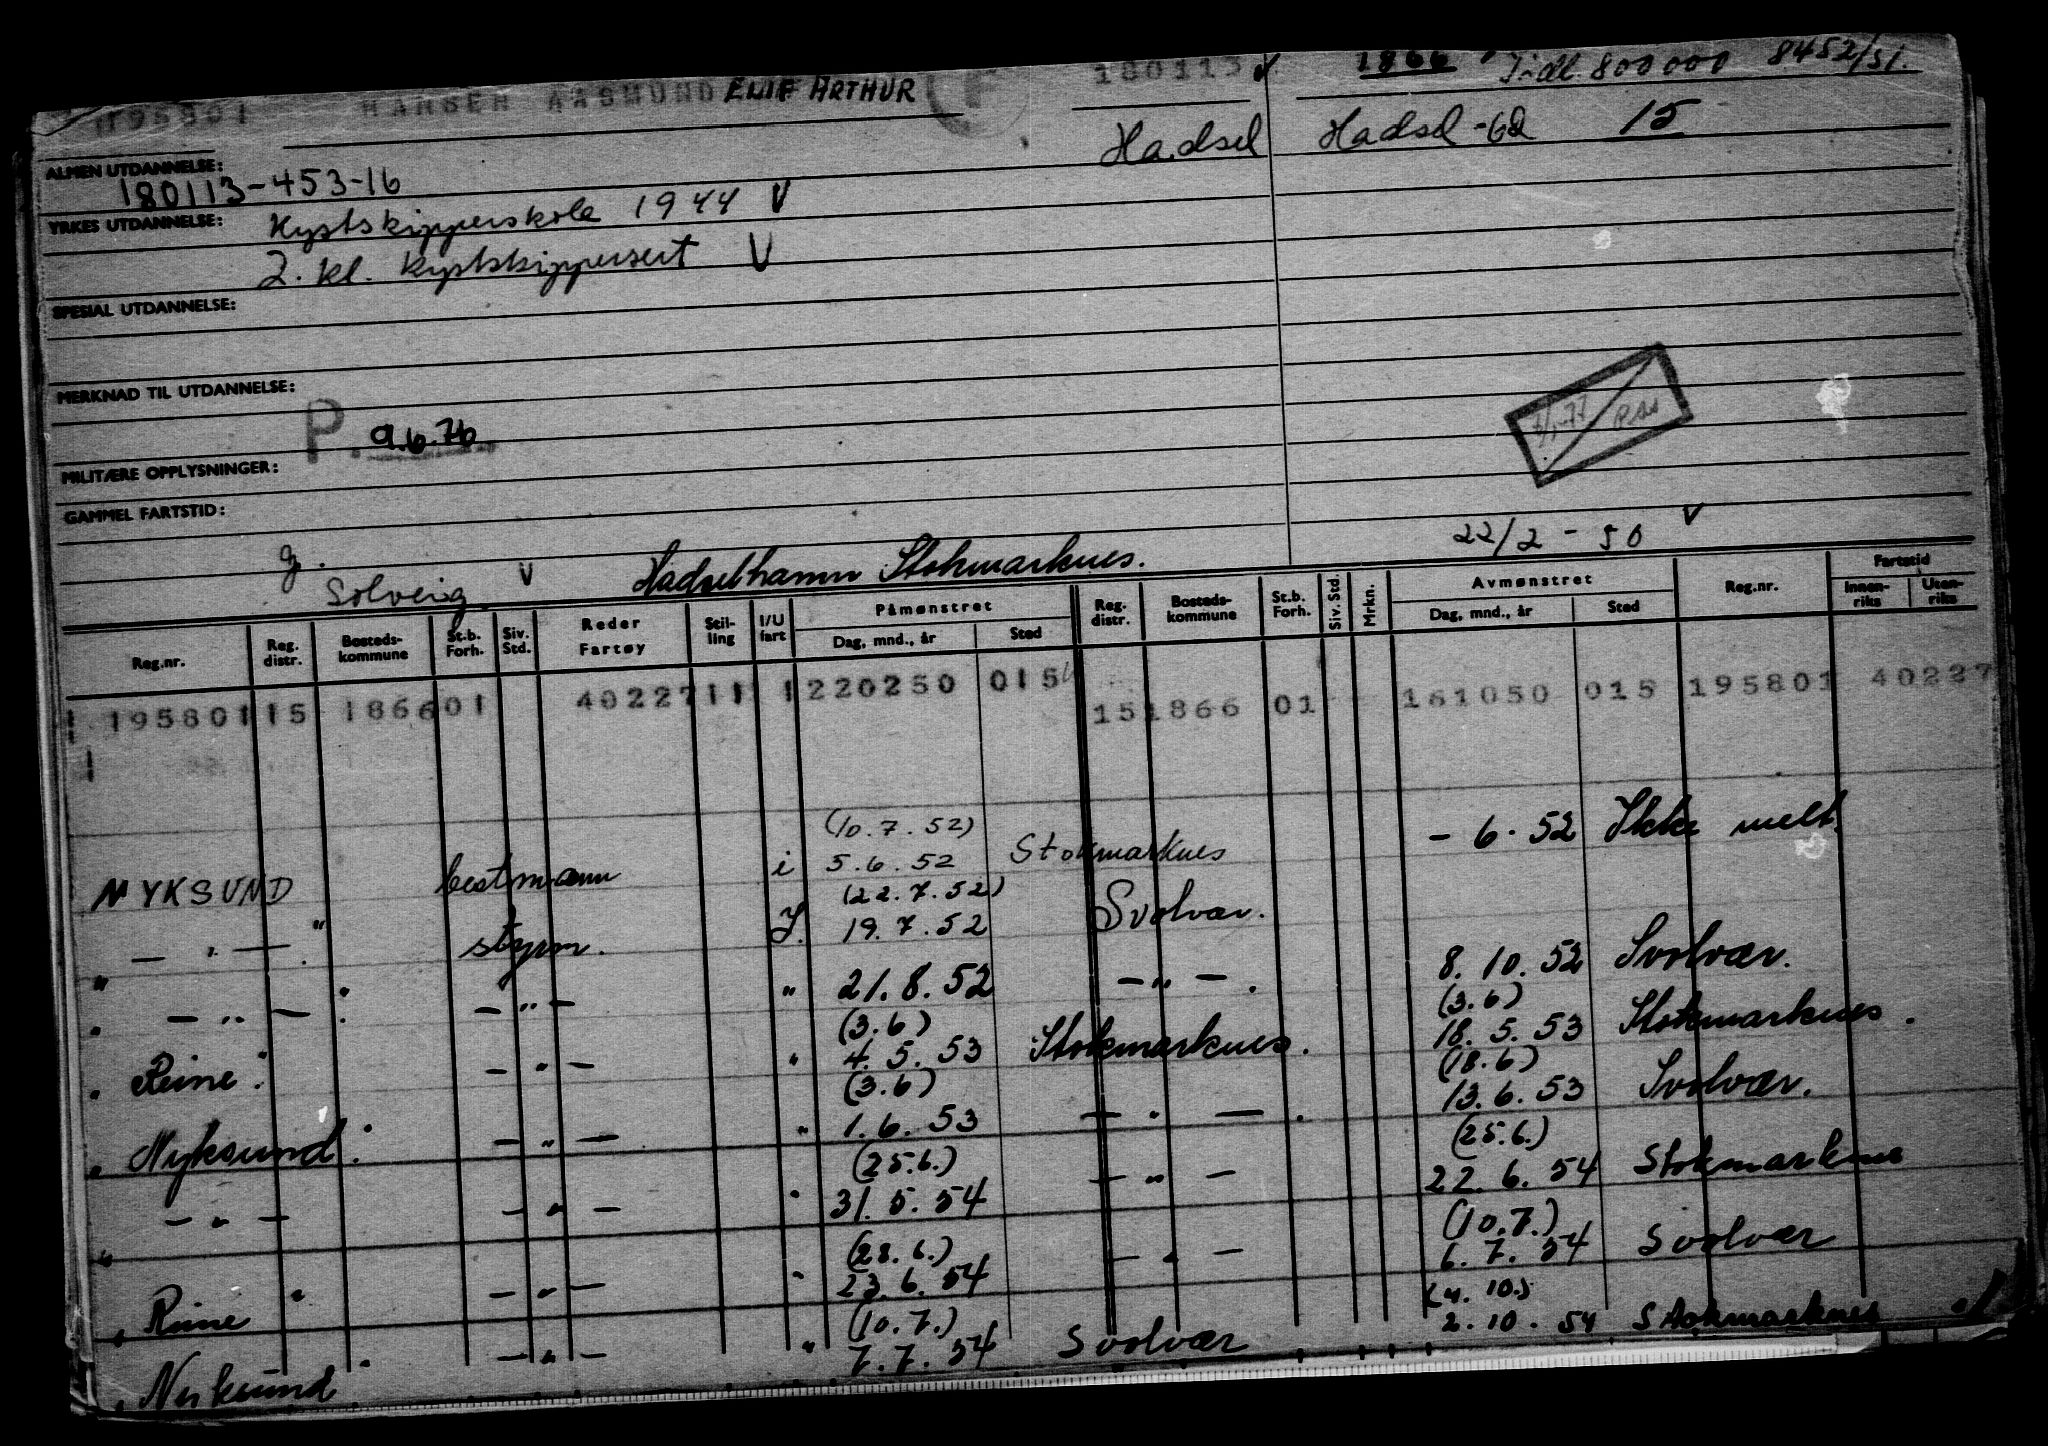 195801 HANSEN AASMUND ELIF ARTHUR 180113 1866 Tidl. 800000 8452/51.
Hadsel Hadsel-62 15
ALMEN UTDANNELSE:
180113-453-16
YRKES UTDANNELSE: Kystskipperskole 1944 V
2. kl. kystskippersert V
SPESIAL UTDANNELSE:
MERKNAD TIL UTDANNELSE:
P. 9.6.76
MILITÆRE OPPLYSNINGER:
GAMMEL FARTSTID:
g. 22/2 - 50 V
Solveig V Hadselhamn Stokmarknes.
Reg.nr. Reg. distr. Bosteds-kommune St.b. Forh. Siv. Std. Reder Fartøy Stil-ling I/U fart Påmønstret Dag, mnd., år Sted Reg. distr. Bosteds-kommune St.b. Forh. Siv. Std. Mrkn. Avmønstret Dag, mnd., år Sted Reg.nr. Fartstid Innen-riks Uten-riks
195801 15 1866 01 40227 11 1 220250 015 15 1866 01 161050 015 195801 40227
(10.7.52)
NYKSUND bestmann i 5.6.52 Stokmarknes - 6.52 Ikke melt.
(22.7.52)
" — " — " styrm. I. 19.7.52 Svolvær.
" — " — " — " — " 21.8.52 — " — . 8.10.52 Svolvær.
(3.6) (3.6)
" Reine " — " — " 4.5.53 Stokmarknes. 18.5.53 Stokmarknes.
(3.6) (18.6)
" Nyksund " — " — " 1.6.53 — " — . 13.6.53 Svolvær.
(25.6.) (25.6.)
" — " — — " — " 31.5.54 — " — 22.6.54 Stokmarknes
(28.6.) (10.7.)
" Reine " — " — " 23.6.54 — " — 6.7.54 Svolvær
(10.7.) (4.10.)
" Nyksund " — " — " 7.7.54 Svolvær 2.10.54 Stokmarknes